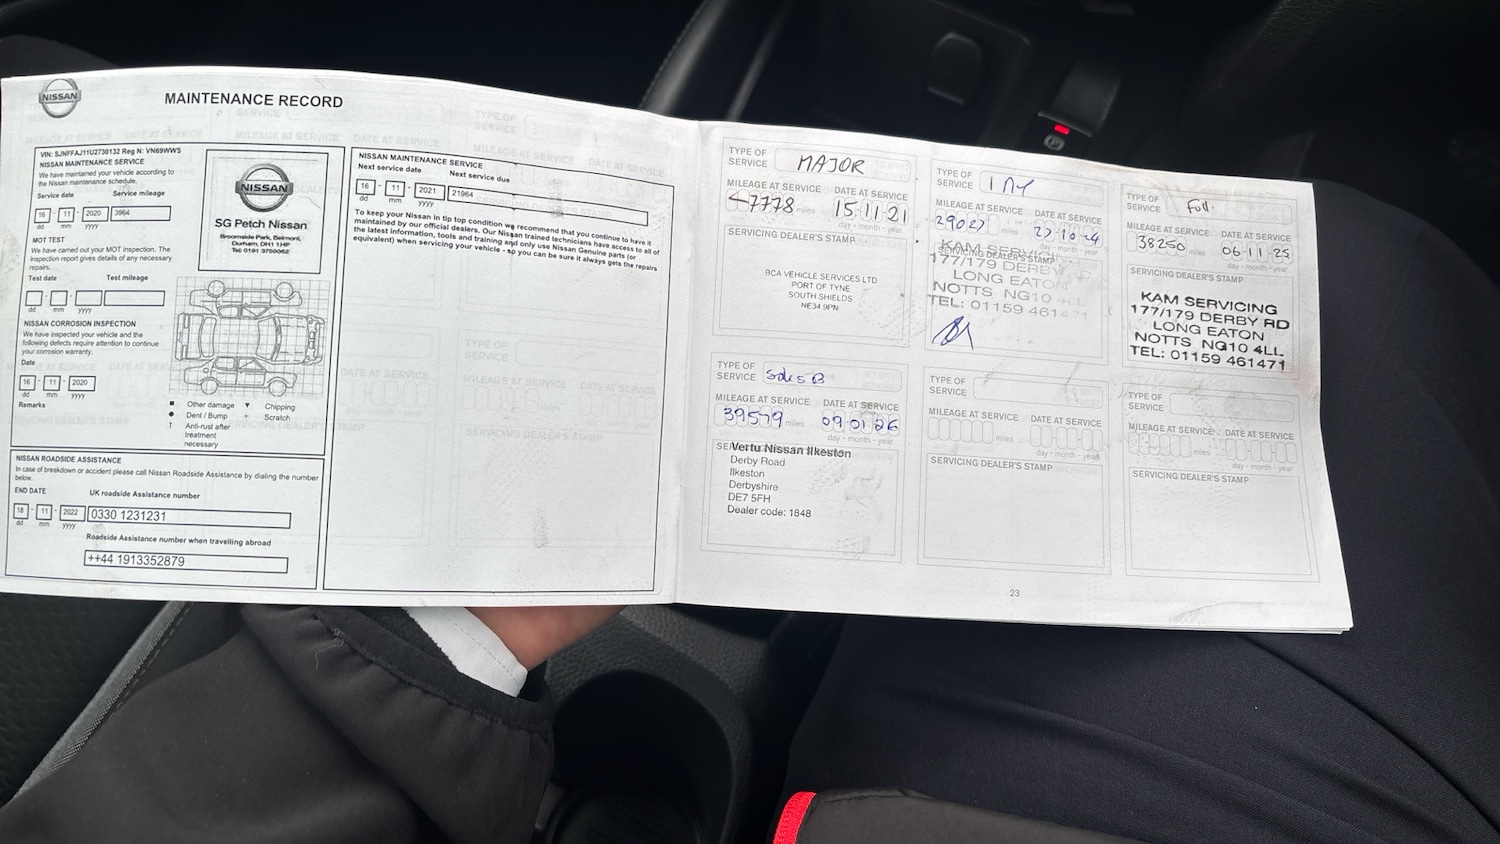 NISSAN
MAINTENANCE RECORD
VIN: SJNFFAJ11U2730132 Reg N: VN69WWS
NISSAN MAINTENANCE SERVICE
We have maintained your vehicle according to
the Nissan maintenance schedule.
Service date Service mileage
16 - 11 - 2020 3964
dd mm yyyy
MOT TEST
We have carried out your MOT inspection. The
inspection report gives details of any necessary
repairs.
Test date Test mileage
dd mm yyyy
NISSAN CORROSION INSPECTION
We have inspected your vehicle and the
following defects require attention to continue
your corrosion warranty.
Date
16 - 11 - 2020
dd mm yyyy
Remarks
NISSAN
SG Petch Nissan
Broomside Park, Belmont,
Durham, DH1 1HP
Tel: 0191 3750062
Other damage
Chipping
Dent / Bump
Scratch
Anti-rust after
treatment
necessary
NISSAN ROADSIDE ASSISTANCE
In case of breakdown or accident please call Nissan Roadside Assistance by dialing the number
below.
END DATE UK roadside Assistance number
18 - 11 - 2022 0330 1231231
dd mm yyyy
Roadside Assistance number when travelling abroad
++44 1913352879
NISSAN MAINTENANCE SERVICE
Next service date Next service due
16 - 11 - 2021 21964
dd mm yyyy
To keep your Nissan in tip top condition we recommend that you continue to have it
maintained by our official dealers. Our Nissan trained technicians have access to all of
the latest information, tools and training and only use Nissan Genuine parts (or
equivalent) when servicing your vehicle - so you can be sure it always gets the repairs
TYPE OF
SERVICE MAJOR
MILEAGE AT SERVICE DATE AT SERVICE
7778 miles 15.11.21
day - month - year
SERVICING DEALER'S STAMP
RCA VEHICLE SERVICES LTD
PORT OF TYNE
SOUTH SHIELDS
NE34 9PN
TYPE OF
SERVICE
MILEAGE AT SERVICE DATE AT SERVICE
29027 miles 27-10-24
day - month - year
SERVICING DEALER'S STAMP
KAM SERVICING
177/179 DERBY RD
LONG EATON
NOTTS NG10 4LL
TEL: 01159 461471
TYPE OF
SERVICE Full.
MILEAGE AT SERVICE DATE AT SERVICE
38250 miles 06-11-25
day - month - year
SERVICING DEALER'S STAMP
KAM SERVICING
177/179 DERBY RD
LONG EATON
NOTTS NG10 4LL
TEL: 01159 461471
TYPE OF
SERVICE
MILEAGE AT SERVICE DATE AT SERVICE
39579 miles 09-01-26
day - month - year
Vertu Nissan Ilkeston
Derby Road
Ilkeston
Derbyshire
DE7 5FH
Dealer code: 1848
TYPE OF
SERVICE
MILEAGE AT SERVICE DATE AT SERVICE
miles
day - month - year
SERVICING DEALER'S STAMP
TYPE OF
SERVICE
MILEAGE AT SERVICE DATE AT SERVICE
miles
day - month - year
SERVICING DEALER'S STAMP
23